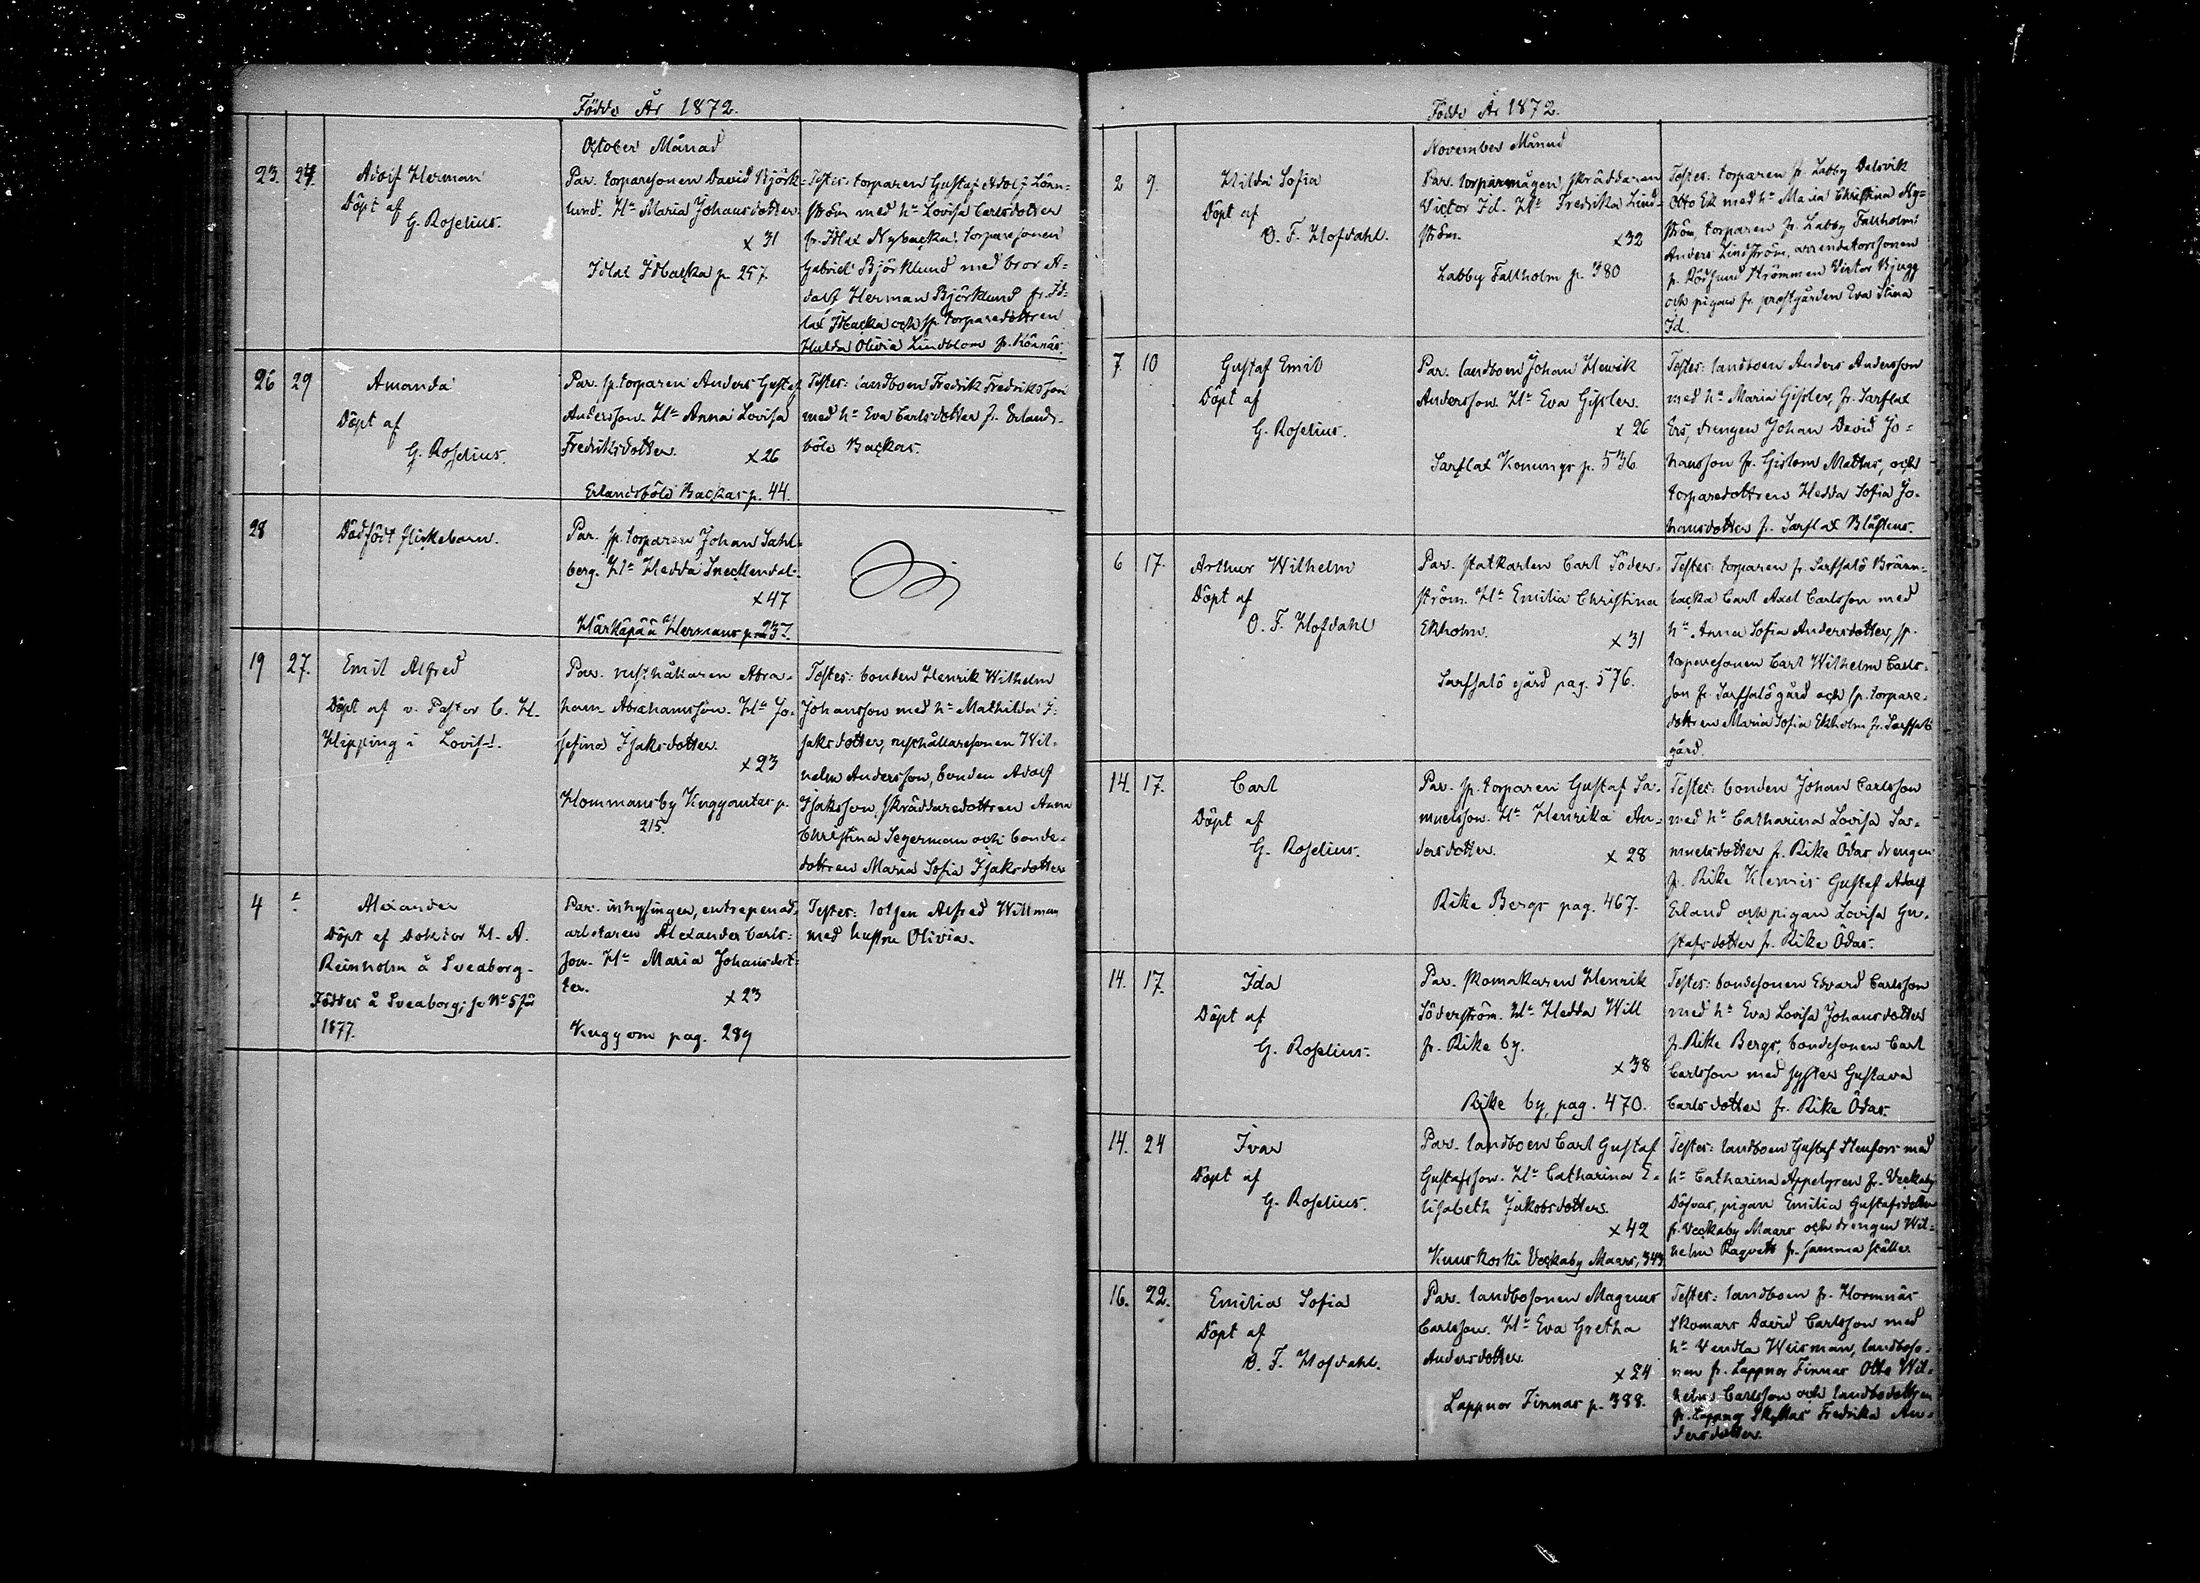 Födde År 1872.
October Månad
23. 24. Adolf Herman
Döpt af
G. Roselius.
Par. torparesonen David Björk-
lund. Hu Maria Johansdotter.
x 31
Idlax Idbacka p. 257
Testes: torparen Gustaf Adolf Lönn-
ström med hu Lovisa Carlsdotter
fr. Idlax Nybacka, torparesonen
Gabriel Björklund med bror A-
dolf Herman Björklund fr. Id-
lax Idbacka och sp. torparedottren
Hulda Olivia Lindblom fr. Könnäs.
26 29 Amanda
Döpt af
G. Roselius.
Par. sp. torparen Anders Gustaf
Andersson. Hu Anna Lovisa
Fredriksdotter.
x 26
Erlandsböle Backas p. 44.
Testes: landboen Fredrik Fredriksson
med hu Eva Carlsdotter fr. Erlands-
böle Backas.
28 Dödfödt flickebarn.
Par. sp. torparen Johan Sahl-
berg. Hu Hedda Snecklendal.
x 47
Härkäpää Hermans p. 237.
19 27. Emil Alfred
Döpt af v. Pastor C. H.
Klipping i Lovisa.
Par. rusthållaren Abra-
ham Abrahamsson. Hu Jo-
sefina Isaksdotter.
x 23
Hommansby Kuggomtas p.
215.
Testes: bonden Henrik Wilhelm
Johansson med hu Mathilda I-
saksdotter, rusthållaresonen Wil-
helm Andersson, bonden Adolf
Isaksson, skräddaredottren Anna
Christina Segerman och bonde-
dottren Maria Sofia Isaksdotter
4 Alexander
Döpt af Doktor H. A.
Reinholm å Sveaborg.
Föddes å Sveaborg; se No 5 för
1877.
Par. inhysingen, entreprenad-
arbetaren Alexander Carls-
son. Hu Maria Johansdot-
ter.
x 23
Kuggom pag. 289
Testes: lotsen Alfred Willman
med hustru Olivia.
Födde År 1872.
November Månad
2 9. Hilda Sofia
Döpt af
O. F. Hofdahl.
Par. torparemågen, skräddaren
Victor Id. Hu Fredrika Lind-
ström.
x 32
Labby Fallholm p. 380
Testes: torparen fr. Labby Dalsvik
Otto Ek med hu Maria Christina Ny-
ström, torparen fr. Labby Fallholm
Anders Lindström, arrendatorssonen
fr. Rödsund Strömmen Victor Bjugg
och pigan fr. prostgården Eva Stina
Id.
7 10 Gustaf Emil
Döpt af
G. Roselius.
Par. landboen Johan Henrik
Andersson. Hu Eva Gisler.
x 26
Sarflax Konungs p. 536.
Testes: landboen Anders Andersson
med hu Maria Gisler, fr. Sarflax
Ers, drengen Johan David Jo-
hansson fr. Gislom Mattas, och
torparedottren Hedda Sofia Jo-
hansdotter fr. Sarflax Blåsius.
6 17. Arthur Wilhelm
Döpt af
O. F. Hofdahl
Par. statkarlen Carl Söder-
ström. Hu Emilia Christina
Ekholm.
x 31
Sarfsalö gård pag. 576.
Testes: torparen fr. Sarfsalö Bränn-
backa Carl Axel Carlsson med
hu Anna Sofia Andersdotter, sp.
torparesonen Carl Wilhelm Carls-
son fr. Sarfsalö gård och sp. torpare-
dottren Maria Sofia Ekholm fr. Sarfsalö
gård.
14. 17. Carl
Döpt af
G. Roselius.
Par. sp. torparen Gustaf Sa-
muelsson. Hu Henrika An-
dersdotter.
x 28
Rike Bergs pag. 467.
Testes: bonden Johan Carlsson
med hu Catharina Lovisa Sa-
muelsdotter fr. Rike Ödas, drengen
fr. Rike Klemis Gustaf Adolf
Erland och pigan Lovisa Gu-
stafsdotter fr. Rike Ödas.
14. 17. Ida
Döpt af
G. Roselius.
Par. Skomakaren Henrik
Söderström. Hu Hedda Will
fr. Rike by.
x 38
Rike by, pag. 470.
Testes: bondesonen Edvard Carlsson
med hu Eva Lovisa Johansdotter
fr. Rike Bergs, bondesonen Carl
Carlsson med syster Gustava
Carlsdotter fr. Rike Ödas.
14. 24 Ivar
Döpt af
G. Roselius.
Par. landboen Carl Gustaf
Gustafsson. Hu Catharina E-
lisabeth Jakobsdotter.
x 42
Kuuskoski Veckaby Maars, 343
Testes: landboen Gustaf Stenfors med
hu Catharina Appelgren fr. Veckaby
Dösvas, pigan Emilia Gustafsdotter
fr. Veckaby Maars och drengen Wil-
helm Ragvett fr. samma ställe.
16. 22. Emilia Sofia
Döpt af
O. F. Hofdahl.
Par. landbosonen Magnus
Carlsson. Hu Eva Gretha
Andersdotter.
x 24
Lappnor Finnas p. 388.
Testes: landboen fr. Hormnäs
Skomars David Carlsson med
hu Vendla Weisman, landboso-
nen fr. Lappnor Finnas Otto Wil-
helm Carlsson och landbodottren
fr. Lappnor Skyttas Fredrika An-
dersdotter.